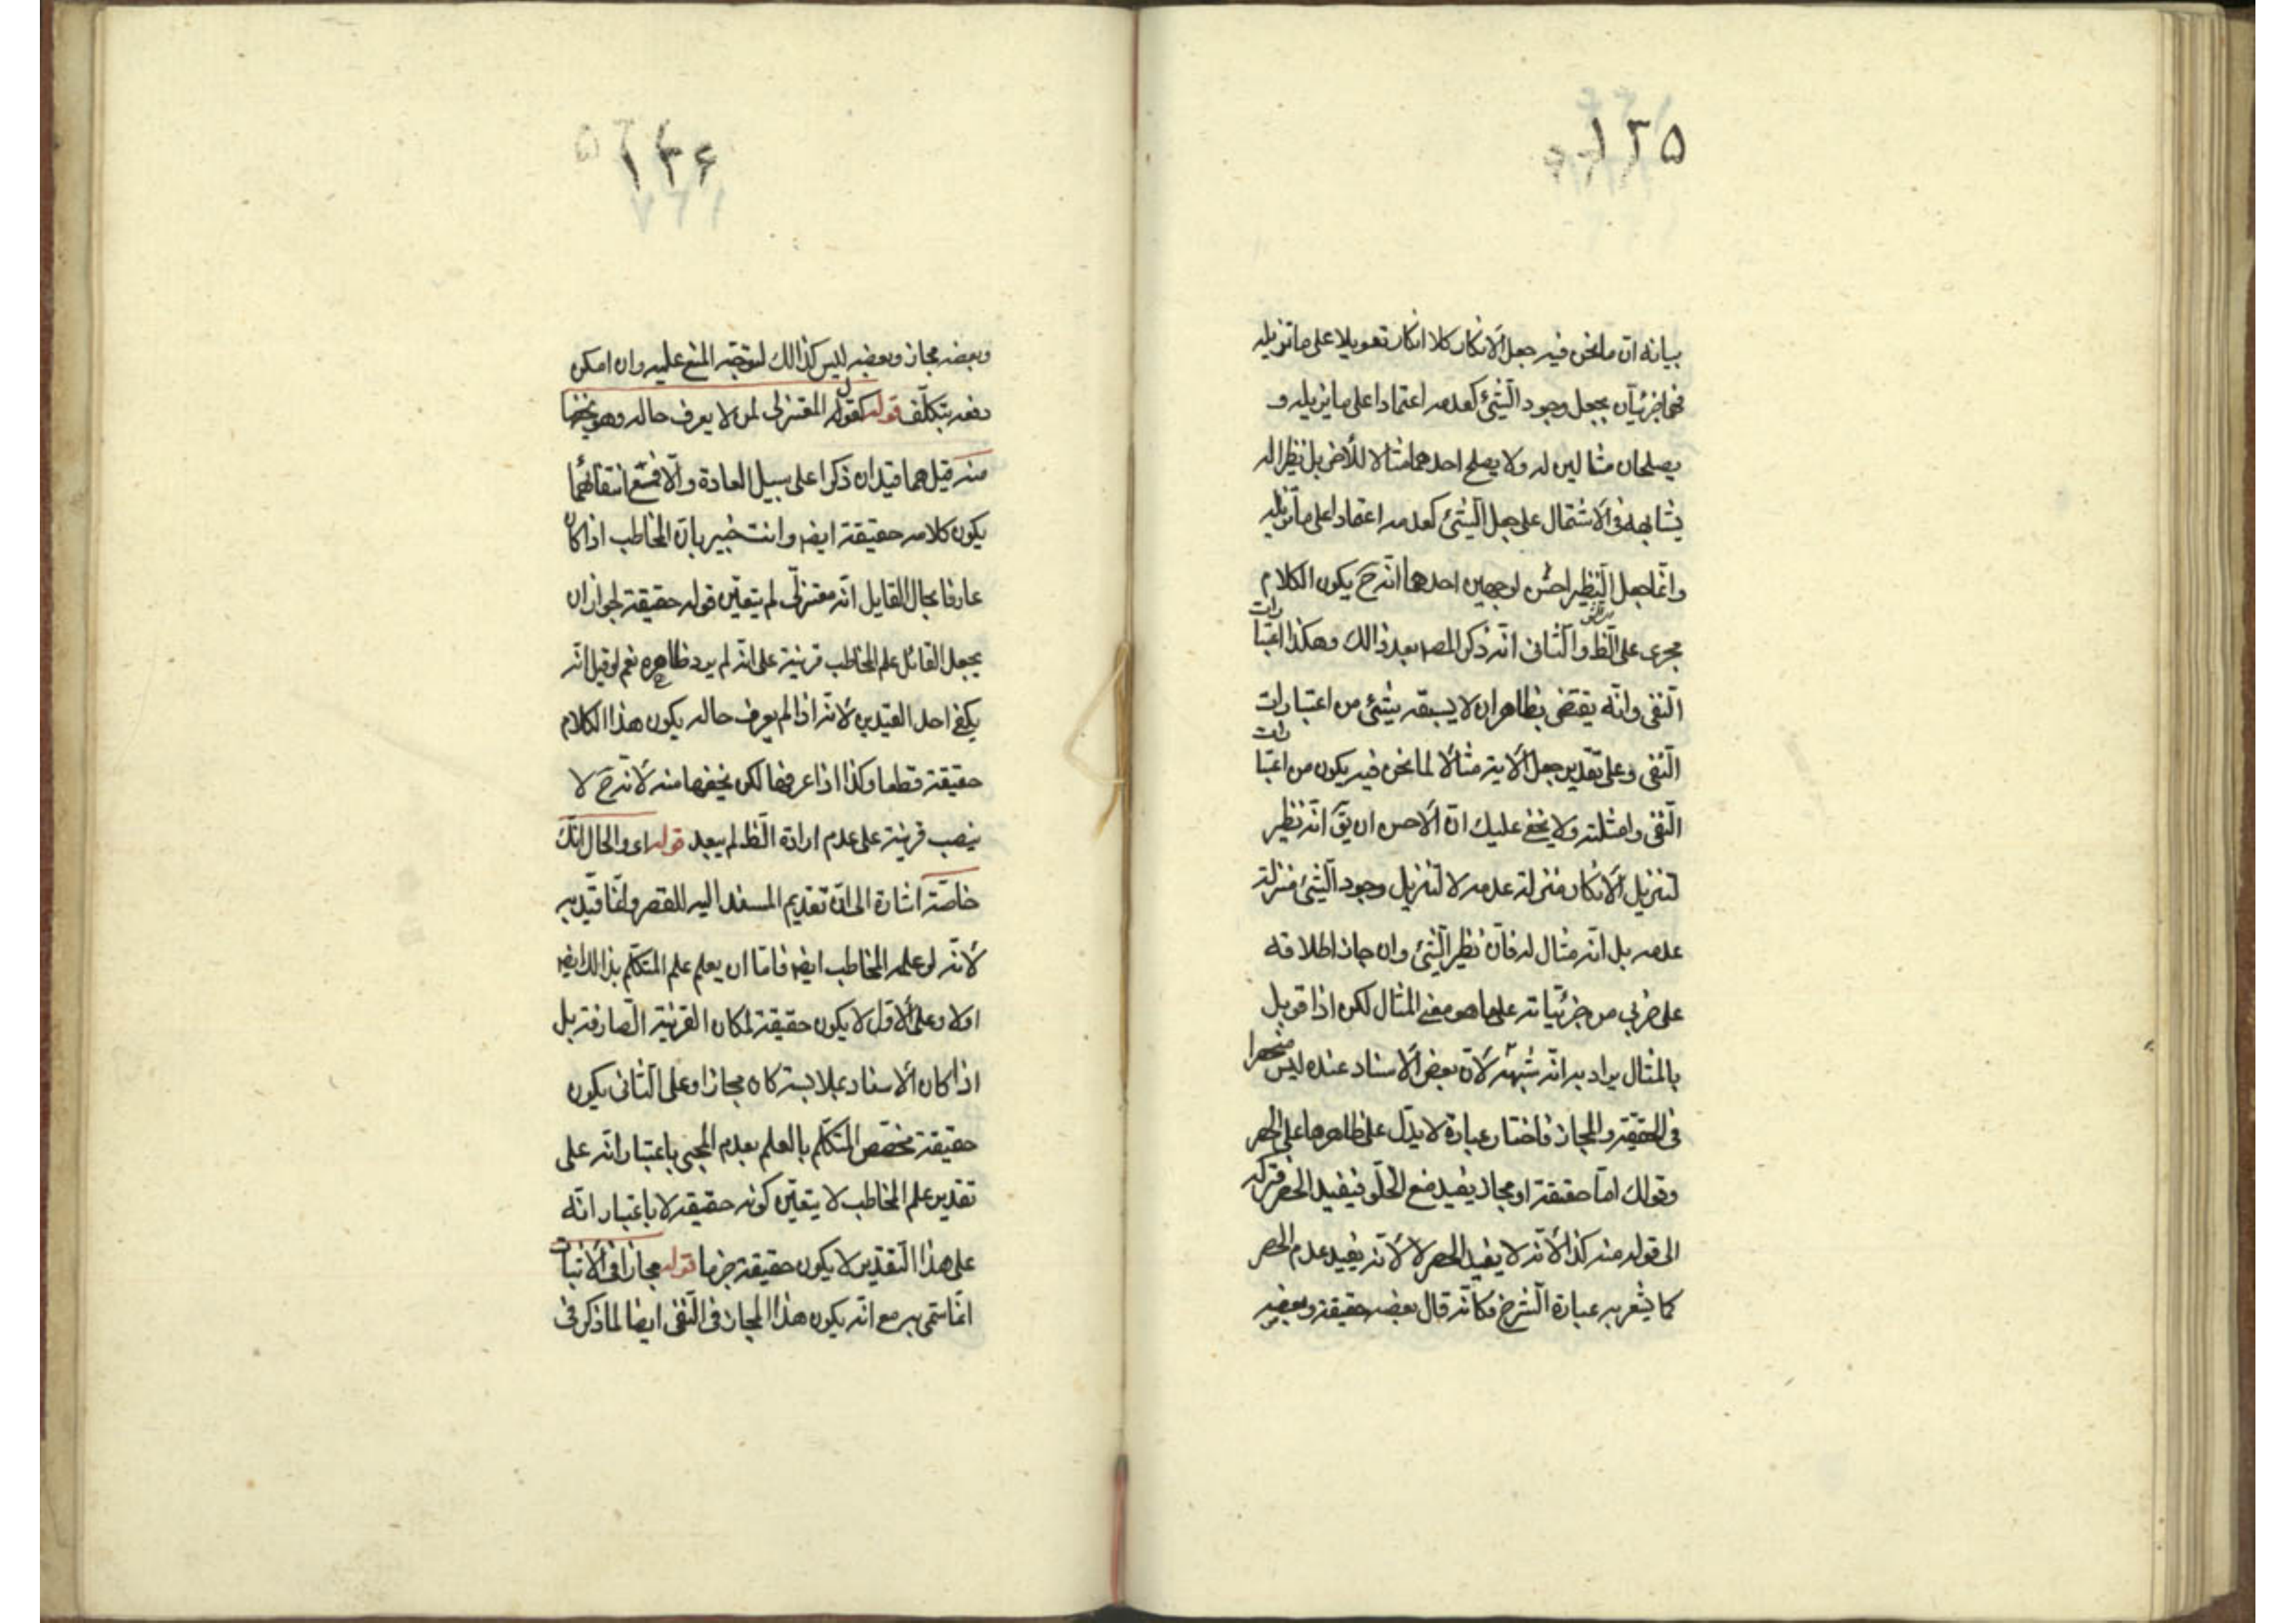 ۱۲۵
بيانه ان ما نحن فيه جعل الانكار كلا انكار تعويلا على ما تزيله
فهما جزئيان بجعل وجود الشئ كعدمه اعتمادا على ما يزيله و
يصلحان مثالين له ولا يصلح احدهما مثالا للآخر بل نظيرا له
يشابهه فى الاشتمال على جعل الشئ كعدمه اعتمادا على ما يزيله
وانما جعل النظير احسن لوجهين احدهما انه ح يكون الكلام
مجرى على الظ والثانى انه ذكر المصـ بعد ذالك وهكذا اعتبارات
النفى وانه يقتضى بظاهره ان لا يسبقه شئ من اعتبارات
النفى وعلى تقدير جعل الآية مثالا لما نحن فيه يكون من اعتبارات
النفى وامثلته ولا يخفى عليك ان الاحسن ان يق انه نظير
لتنزيل الانكار منزلة عدمه لا لتنزيل وجود الشئ منزلة
عدمه بل انه مثال له فان نظير الشئ وان جاز اطلاقه
على ضربى من جزئياته على ما هو معنى المثال لكن اذا قوبل
بالمثال يراد به انه شبهه لان بعض الاسناد عنده ليس منحصرا
فى الحقيقة والمجاز فاختار عبارة لا يدل على ظاهرها على الحصر
وقولك اما حقيقة او مجاز يفيد منع الخلو فيفيد الحصر فتركه
الى قوله منه كذا لانه لا يفيد الحصر لا لانه يفيد عدم الحصر
كما يشعر به عبارة الشرح فكانه قال بعضه حقيقة وبعضه
۱۲۶
وبعضه مجاز وبعضه ليس كذالك لتوجه المنع عليه وان امكن
دفعه بتكلف قوله كقول المعتزلى لمن لا يعرف حاله وهو يخفيها
منه قيل هما قيدان ذكرا على سبيل العادة والا فمع انتفائهما
يكون كلامه حقيقة ايضا وانت خبير بان المخاطب اذا كان
عارفا بحال القايل انه معتزلى لم يتعين قوله حقيقة لجواز ان
يجعل القائل علم المخاطب قرينة على انه لم يرد ظاهره نعم لو قيل انه
يكفى احد القيدين لانه اذا لم يعرف حاله يكون هذا الكلام
حقيقة قطعا وكذا اذا عرفها لكن يخفيها منه لانه ح لا
ينصب قرينة على عدم ارادة الظ لم يبعد قوله اى والحال انك
خاصة اشارة الى ان تقديم المسند اليه للقصر وانما قيد به
لانه لو علمه المخاطب ايضا فاما ان يعلم علم المتكلم بذالك ايضا
اولا وعلى الاول لا يكون حقيقة لمكان القرينة الصارفة بل
اذا كان الاسناد بملابسة كان مجازا وعلى الثانى يكون
حقيقة مختص المتكلم بالعلم بعدم المجئ باعتبار انه على
تقدير علم المخاطب لا يتعين كونه حقيقة لا باعتبار انه
على هذا التقدير لا يكون حقيقة جزما قوله مجازا فى الاثبات
انما سمى به مع انه يكون هذا المجاز فى النفى ايضا لما ذكر فى